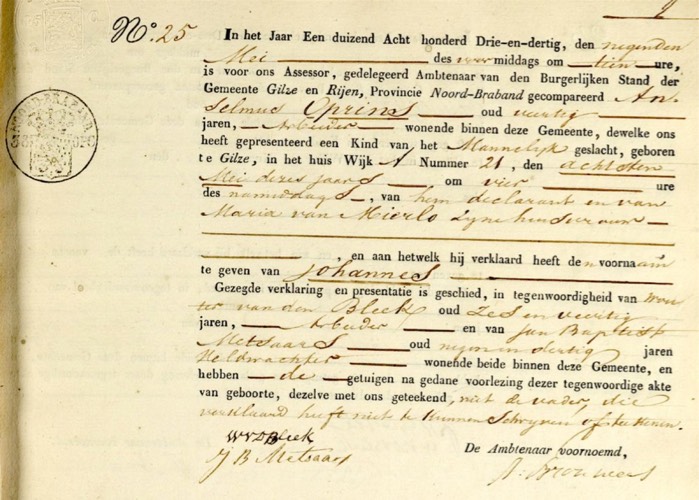 N.o 25
In het Jaar Een duizend Acht honderd Drie-en-dertig, den negenden
Mei des voor middags om tien ure,
is voor ons Assessor, gedelegeerd Ambtenaar van den Burgerlijken Stand der
Gemeente Gilze en Rijen, Provincie Noord-Braband gecompareerd An
selmus Oprins oud veertig
jaren, Arbeider wonende binnen deze Gemeente, dewelke ons
heeft gepresenteerd een Kind van het Mannelijk geslacht, geboren
te Gilze, in het huis Wijk A Nummer 21, den achtsten
Mei dezes jaars om vier ure
des namiddags, van hem declarant en van
Maria van Mierlo zyne huisvrouw
, en aan hetwelk hij verklaard heeft de n voornaam
te geven van Johannes
Gezegde verklaring en presentatie is geschied, in tegenwoordigheid van Wou
ter van den Bleek oud Zes en veertig
jaren, Arbeider en van Jan Baptist
Metsaars oud negen en dertig jaren
Veldwachter wonende beide binnen deze Gemeente, en
hebben de getuigen na gedane voorlezing dezer tegenwoordige akte
van geboorte, dezelve met ons geteekend, niet de vader, die
verklaard heeft niet te kunnen Schryven of teekenen.
WVDBleek
J B Metsaars
De Ambtenaar voornoemd,